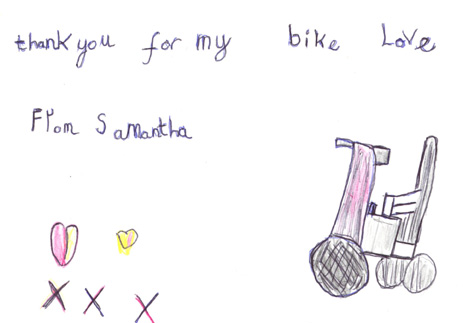 thank you for my bike Love
From Samantha
X X X